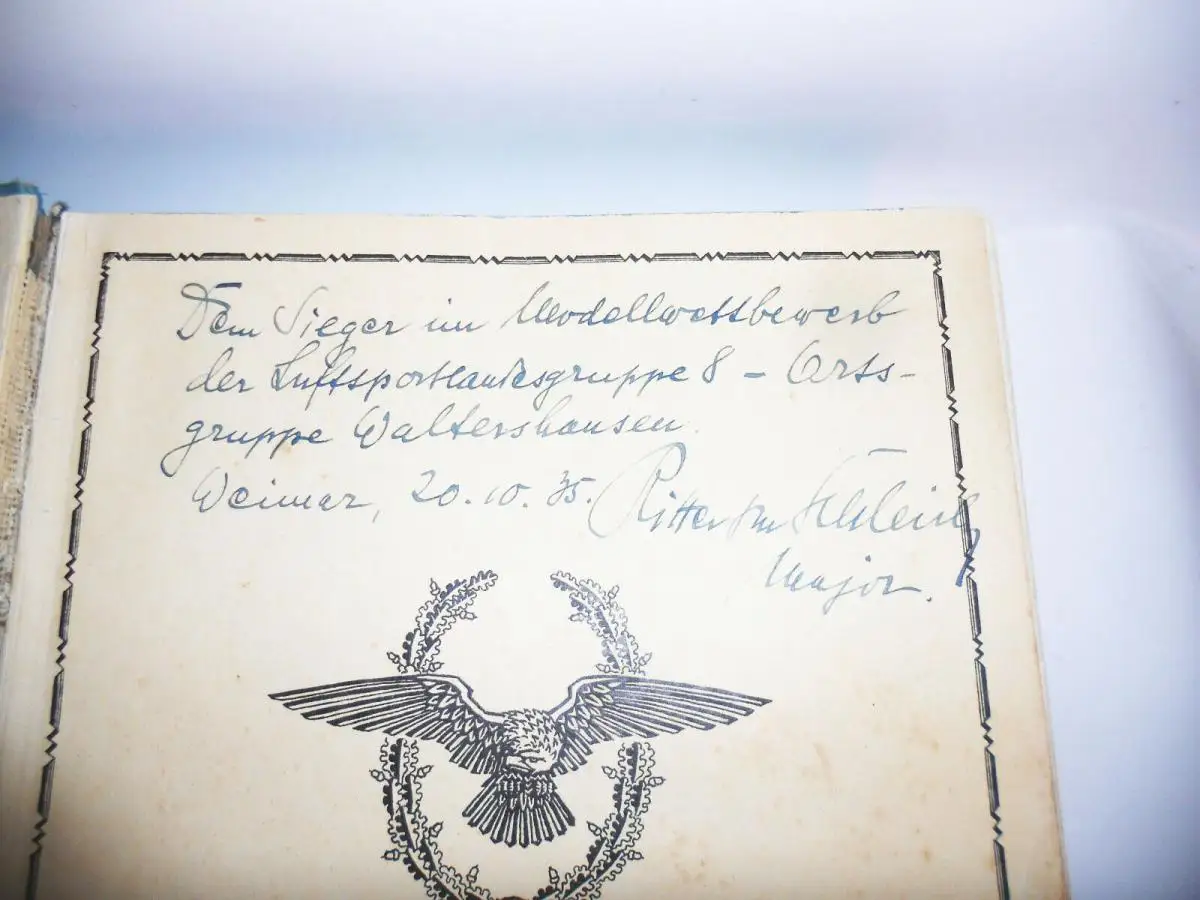 Dem Sieger im Modellwettbewerb
der Luftsportlandesgruppe 8 - Orts-
gruppe Waltershausen.
Weimar, 20.10.35. Ritter
Major.